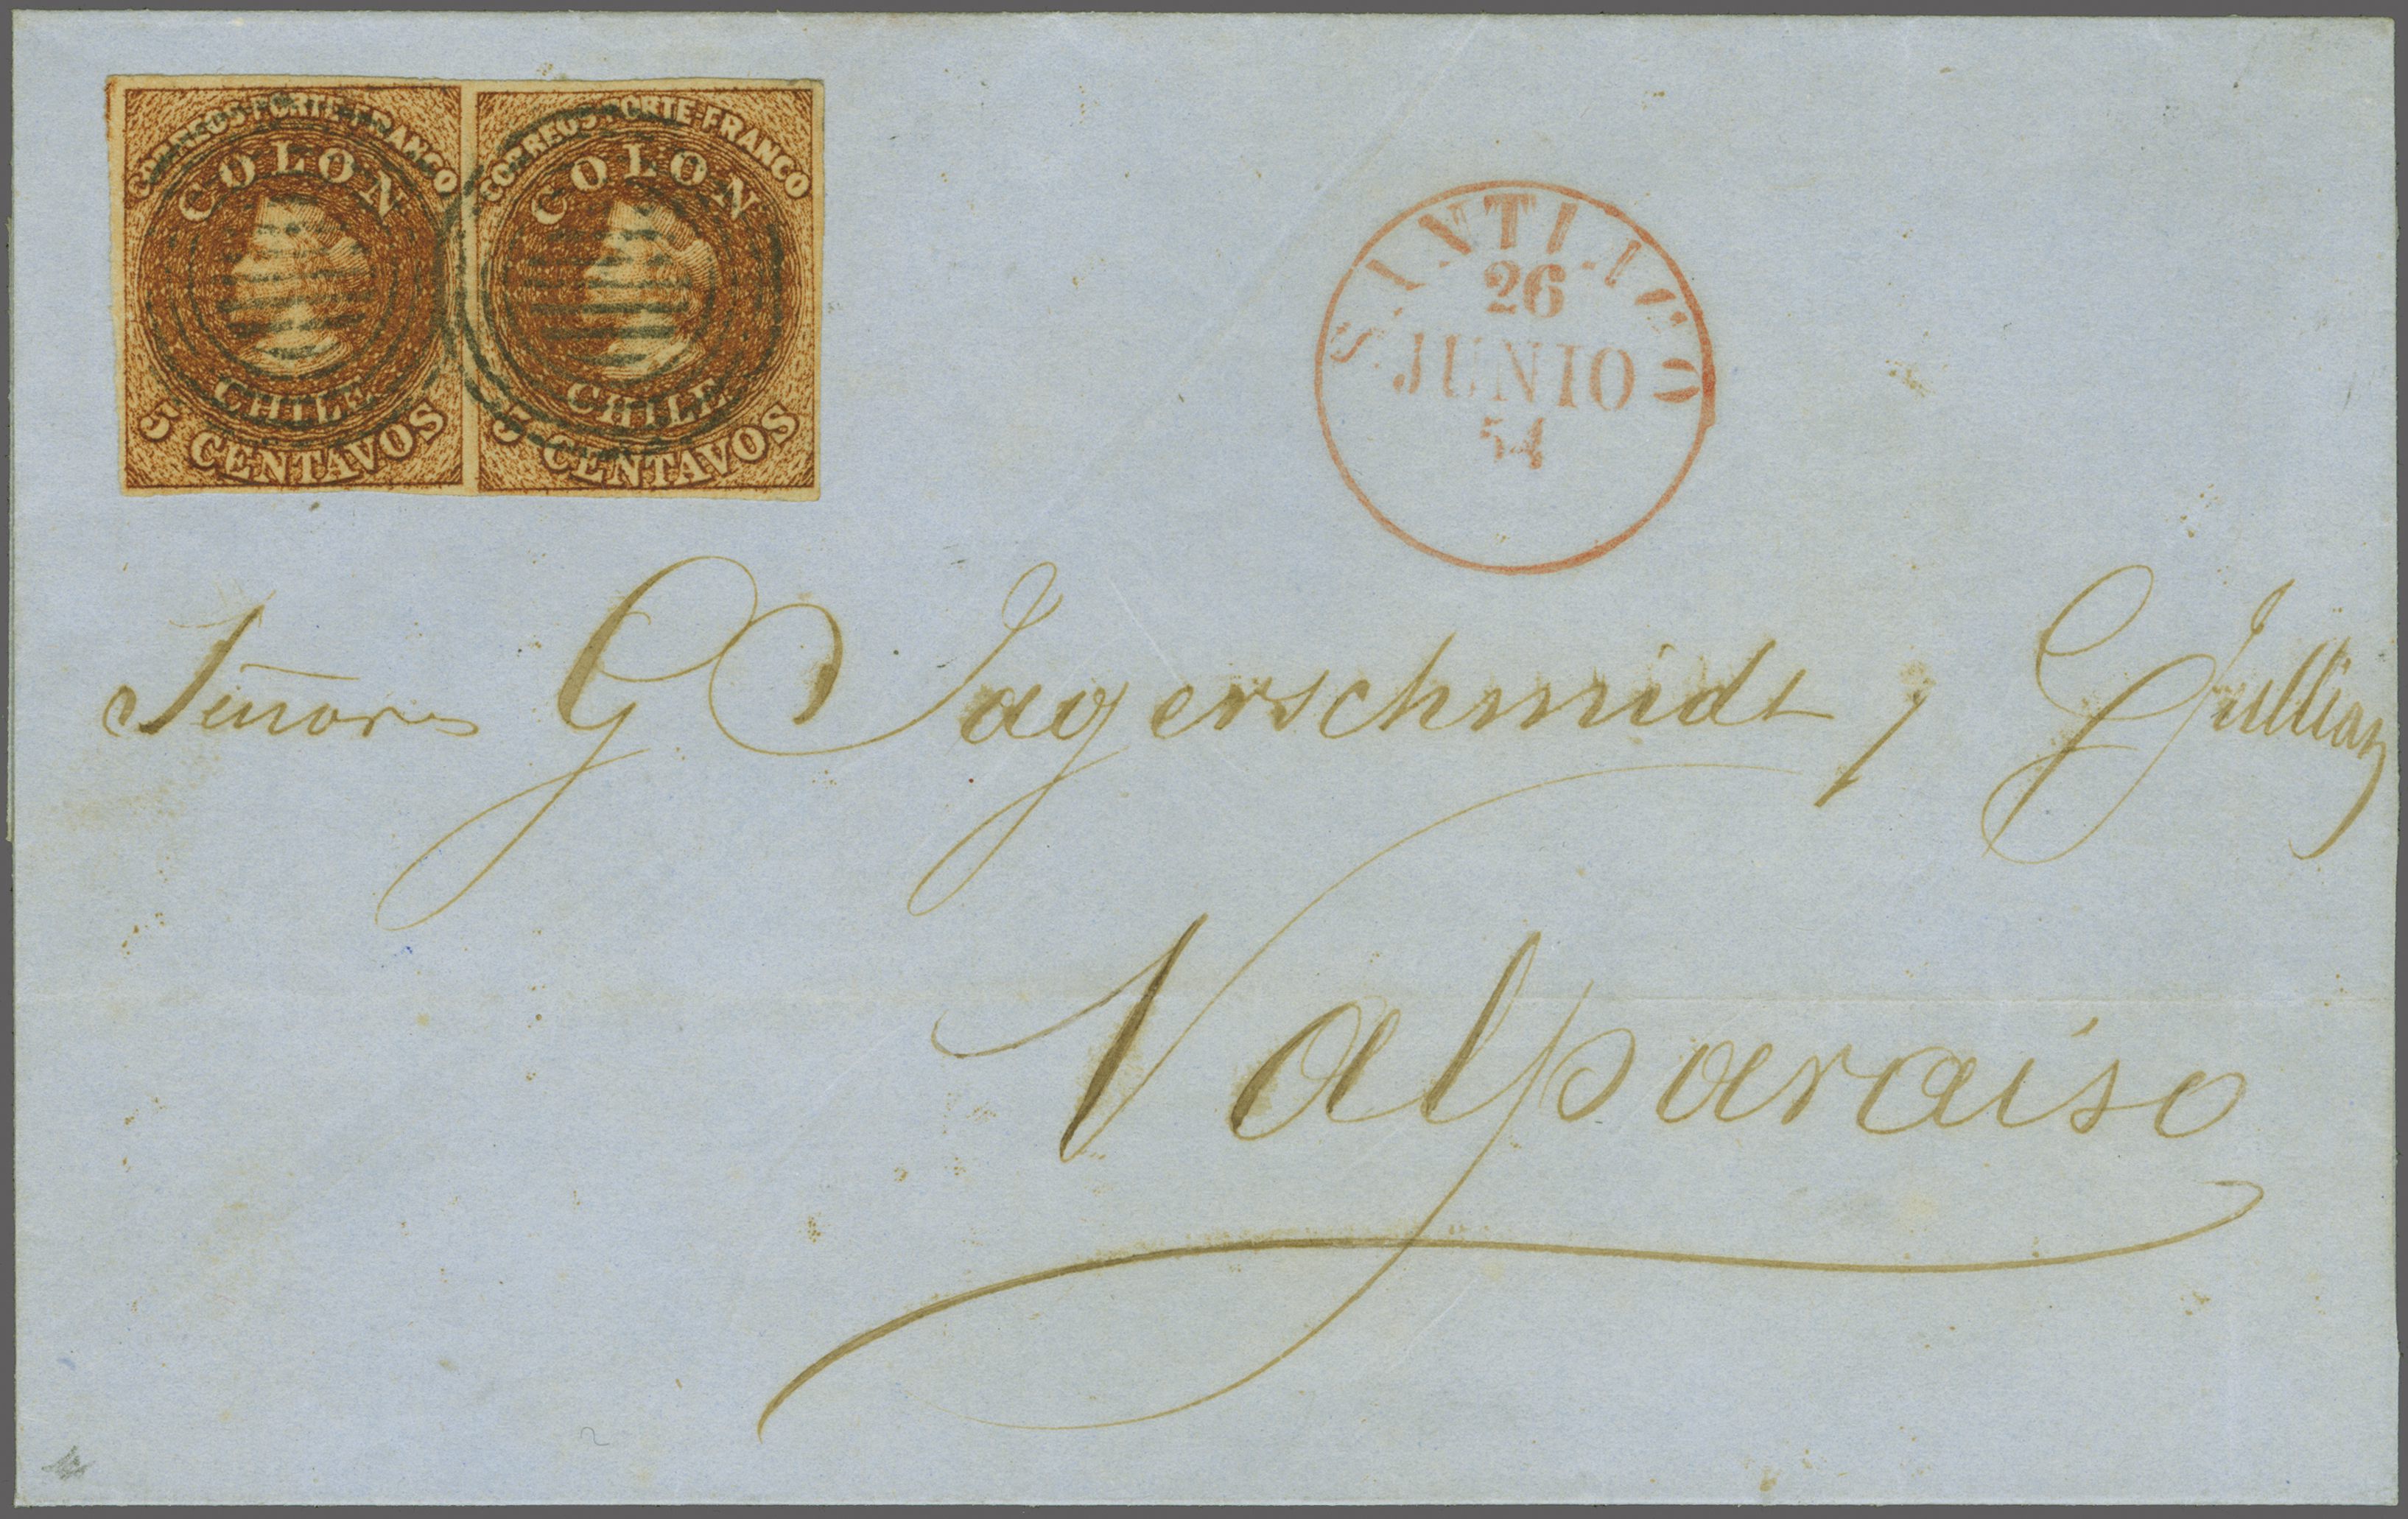 CORREOS PORTE FRANCO
COLON
CHILE
5 CENTAVOS
CORREOS PORTE FRANCO
COLON
CHILE
5 CENTAVOS
SANTIAGO
26
JUNIO
54
Señores G Jagerschmidt y Jullian
Valparaiso